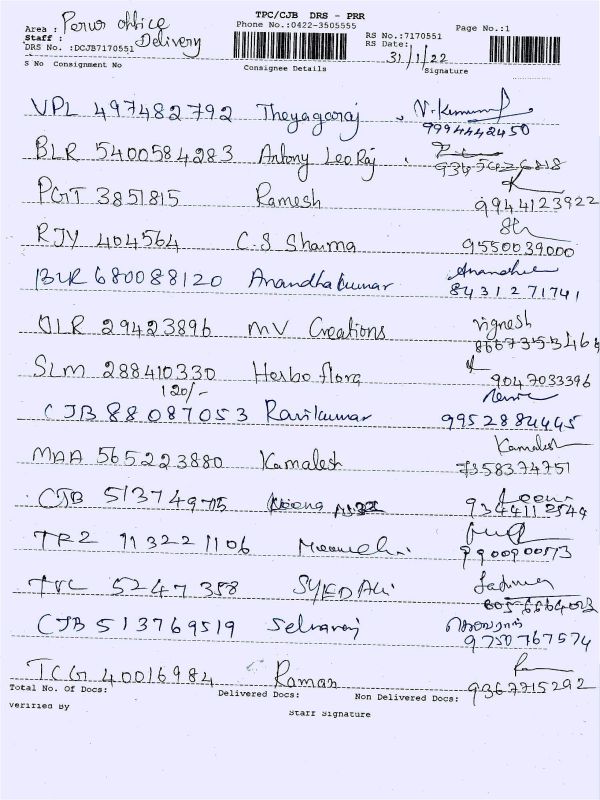 TPC/CJB DRS - PRR
Area : Perur office Phone No.:0422-3505555 Page No.:1
Staff : Delivery RS No.:7170551
DRS No. :DCJB7170551 RS Date: 31/1/22
S No Consignment No Consignee Details Signature
VPL 497482792 Theyagaraj V. Kumar 9994442450
BLR 5400584283 Antony Leo Raj
PGT 3851815 Ramesh 9944123922
RJY 404564 C.S Sharma 9550039000
BLR 680088120 Anandhakumar 8431271741
DLR 29423896 MV Creations Vignesh
SLM 288410330 Herbo flora 9047033396
120/-
CJB 88087053 Ravikumar 9952884445
MAA 565223880 Kamalesh Kamalesh 7358374751
CJB 513774975
TRZ 113221106
TVL 5247358 SYED Ali
CJB 513769519 Selvaraj செல்வராஜ் 9750767574
TCG 40016984 Raman 9367715292
Total No. Of Docs: Delivered Docs: Non Delivered Docs:
Verified By Staff Signature